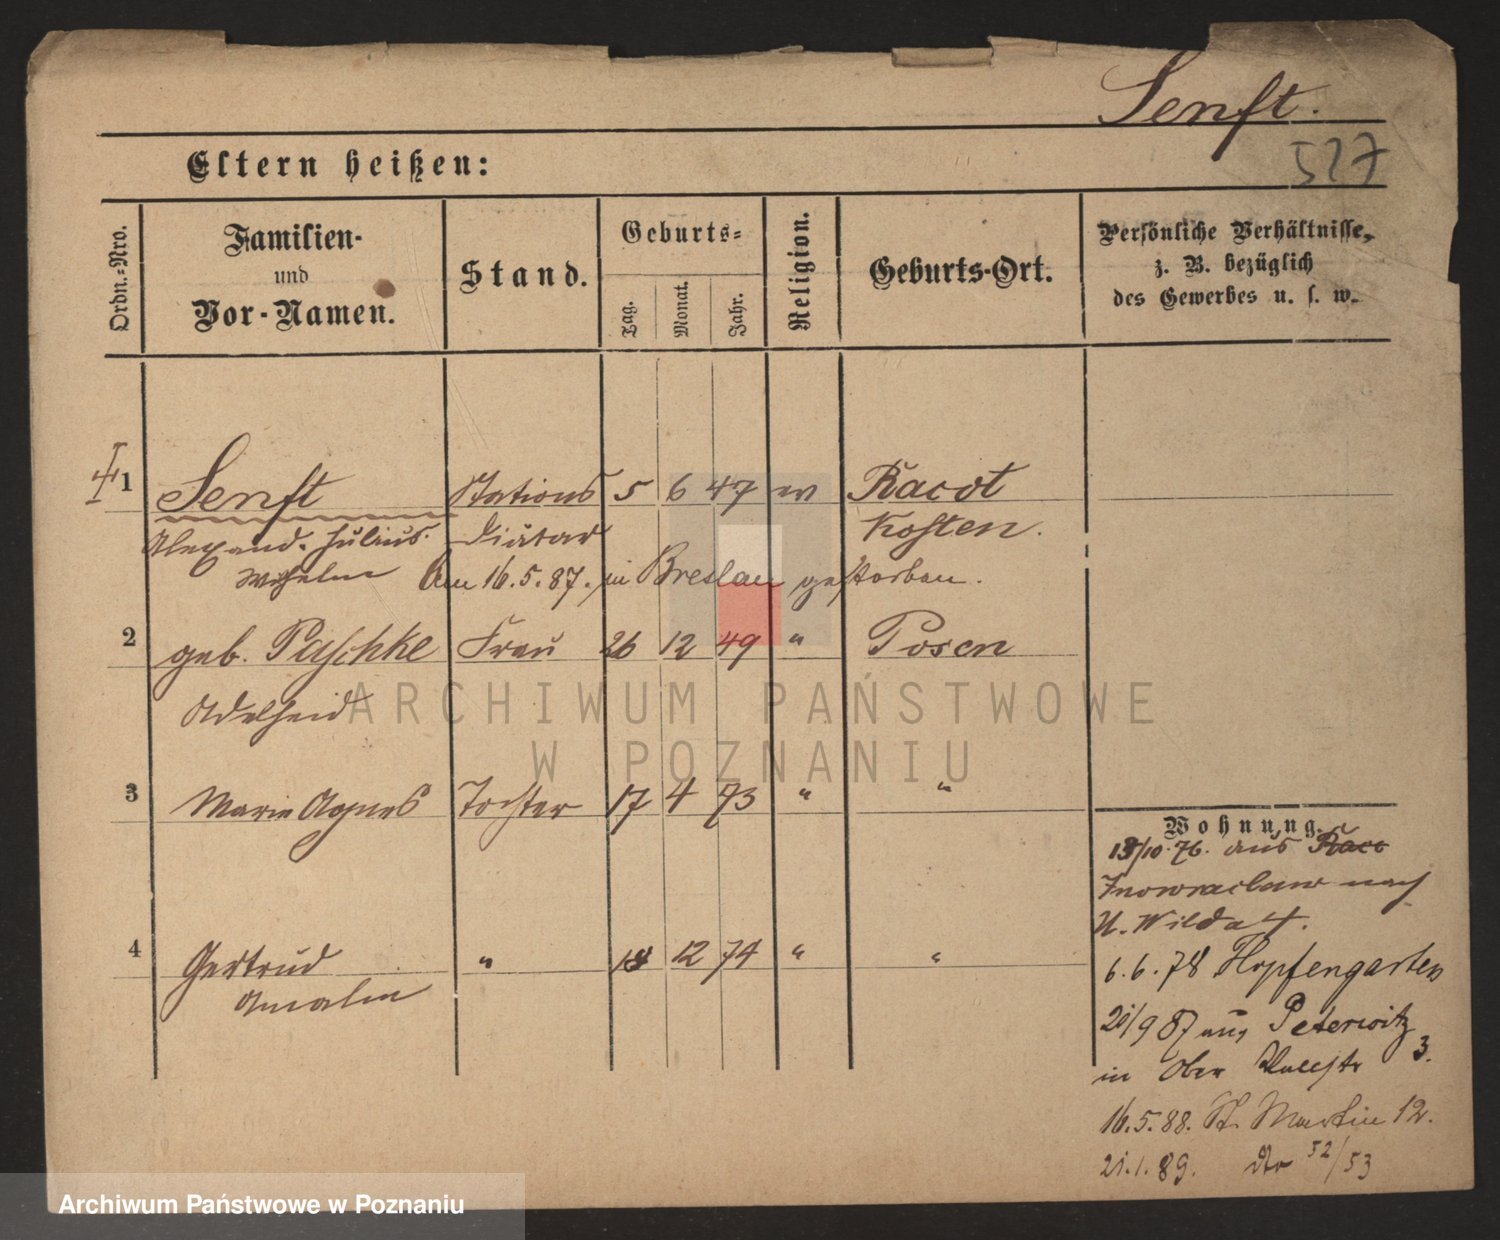 Senft.
527
Eltern heißen:
Ordn.-Nro.
Familien-
und
Vor-Namen.
Stand.
Geburts-
Tag.
Monat.
Jahr.
Religion.
Geburts-Ort.
Persönliche Verhältnisse,
z. B. bezüglich
des Gewerbes u. s. w.
1 Senft Stations 5 6 47 Racot
Alexand. Julius Diätar Kosten.
Wilhelm Am 16.5.87. in Breslau gestorben.
2 geb. Paschke Frau 26 12 49 " Posen
Adelheid
3 Marie Agnes Tochter 17 4 73 " "
4 Gertrud " 18 12 74 " "
Amalie
Wohnung.
/10. 76. aus
Inowraclaw nach
U. Wilda 4.
6.6.78 Hopfengarten
20/9 87 aus Peterwitz
in Ober 3.
16.5.88. St. Martin 12.
21.1.89. dto 52/53
ARCHIWUM PAŃSTWOWE
W POZNANIU
Archiwum Państwowe w Poznaniu